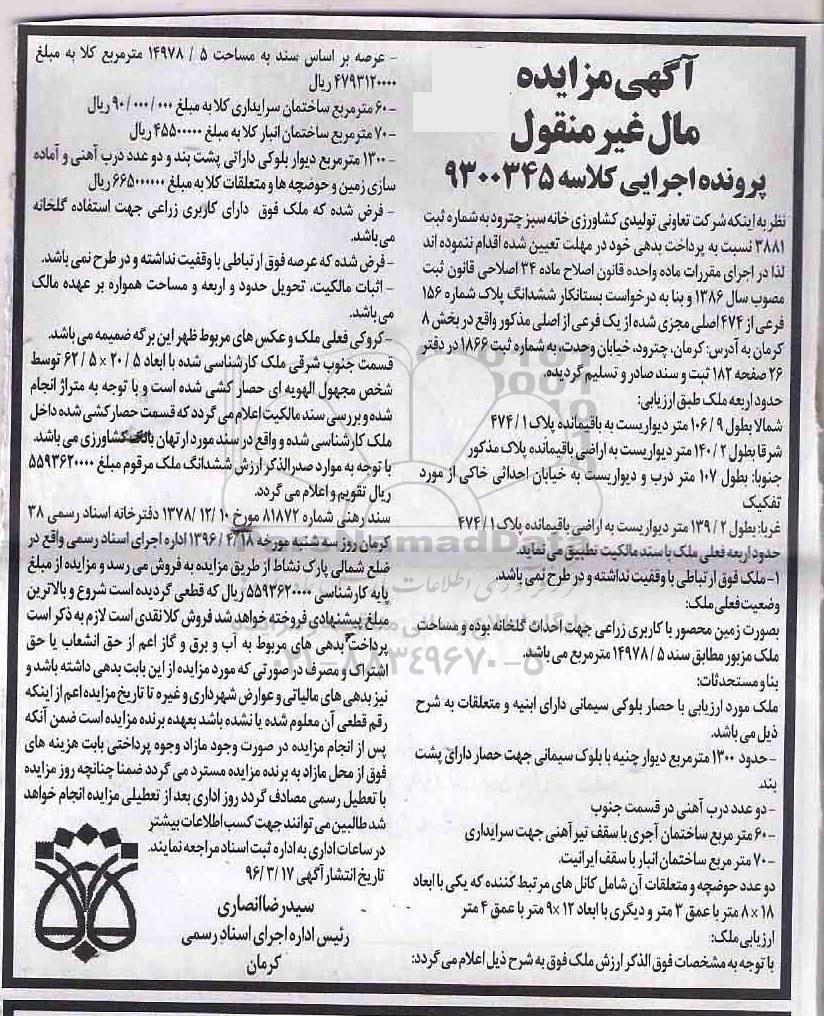 آگهی مزایده
مال غیر منقول
پرونده اجرایی کلاسه ۹۳۰۰۳۴۵
نظر به اینکه شرکت تعاونی تولیدی کشاورزی خانه سبز چترود به شماره ثبت
۳۸۸۱ نسبت به پرداخت بدهی خود در مهلت تعیین شده اقدام ننموده اند
لذا در اجرای مقررات ماده واحده قانون اصلاح ماده ۳۴ اصلاحی قانون ثبت
مصوب سال ۱۳۸۶ و بنا به درخواست بستانکار ششدانگ پلاک شماره ۱۵۶
فرعی از ۴۷۴ اصلی مجزی شده از یک فرعی از اصلی مذکور واقع در بخش ۸
کرمان به آدرس: کرمان، چترود، خیابان وحدت، به شماره ثبت ۱۸۶۶ در دفتر
۲۶ صفحه ۱۸۲ ثبت و سند صادر و تسلیم گردیده.
حدود اربعه ملک طبق ارزیابی:
شمالا بطول ۱۰۶/۹ متر دیواریست به باقیمانده پلاک ۴۷۴/۱
شرقا بطول ۱۴۰/۲ متر دیواریست به اراضی باقیمانده پلاک مذکور
جنوبا: بطول ۱۰۷ متر درب و دیواریست به خیابان احداثی خاکی از مورد
تفکیک
غربا: بطول ۱۳۹/۲ متر دیواریست به اراضی باقیمانده پلاک ۴۷۴/۱
حدود اربعه فعلی ملک با سند مالکیت تطبیق می نماید.
۱- ملک فوق ارتباطی با وقفیت نداشته و در طرح نمی باشد.
وضعیت فعلی ملک:
بصورت زمین محصور با کاربری زراعی جهت احداث گلخانه بوده و مساحت
ملک مزبور مطابق سند ۱۴۹۷۸/۵ مترمربع می باشد.
بنا و مستحدثات:
ملک مورد ارزیابی با حصار بلوکی سیمانی دارای ابنیه و متعلقات به شرح
ذیل می باشد.
- حدود ۱۳۰۰ مترمربع دیوار چنبه با بلوک سیمانی جهت حصار دارای پشت
بند
- دو عدد درب آهنی در قسمت جنوب
- ۶۰ متر مربع ساختمان آجری با سقف تیر آهنی جهت سرایداری
- ۷۰ متر مربع ساختمان انبار با سقف ایرانیت.
دو عدد حوضچه و متعلقات آن شامل کانل های مرتبط کننده که یکی با ابعاد
۱۸×۸ متر با عمق ۳ متر و دیگری با ابعاد ۱۲×۹ متر با عمق ۴ متر
ارزیابی ملک:
با توجه به مشخصات فوق الذکر ارزش ملک فوق به شرح ذیل اعلام می گردد:
- عرصه بر اساس سند به مساحت ۱۴۹۷۸/۵ مترمربع کلا به مبلغ
۴۷۹۳۱۲۰۰۰۰ ریال
- ۶۰ مترمربع ساختمان سرایداری کلا به مبلغ ۹۰/۰۰۰/۰۰۰ ریال
- ۷۰ مترمربع ساختمان انبار کلا به مبلغ ۴۵۵۰۰۰۰۰ ریال
- ۱۳۰۰ مترمربع دیوار بلوکی دارائی پشت بند و دو عدد درب آهنی و آماده
سازی زمین و حوضچه ها و متعلقات کلا به مبلغ ۶۶۵۰۰۰۰۰۰ ریال
- فرض شده که ملک فوق دارای کاربری زراعی جهت استفاده گلخانه
می باشد.
- فرض شده که عرصه فوق ارتباطی با وقفیت نداشته و در طرح نمی باشد.
- اثبات مالکیت، تحویل حدود و اربعه و مساحت همواره بر عهده مالک
می باشد.
- کروکی فعلی ملک و عکس های مربوط ظهر این برگه ضمیمه می باشد.
قسمت جنوب شرقی ملک کارشناسی شده با ابعاد ۲۰/۵ × ۶۲/۵ توسط
شخص مجهول الهویه ای حصار کشی شده است و با توجه به متراژ انجام
شده و بررسی سند مالکیت اعلام می گردد که قسمت حصار کشی شده داخل
ملک کارشناسی شده و واقع در سند مورد ارتهان بانک کشاورزی می باشد.
با توجه به موارد صدرالذکر ارزش ششدانگ ملک مرقوم مبلغ ۵۵۹۳۶۲۰۰۰۰
ریال تقویم و اعلام می گردد.
سند رهنی شماره ۸۱۸۷۲ مورخ ۱۳۷۸/۱۲/۱۰ دفترخانه اسناد رسمی ۳۸
کرمان روز سه شنبه مورخه ۱۳۹۶/۴/۱۸ اداره اجرای اسناد رسمی واقع در
ضلع شمالی پارک نشاط از طریق مزایده به فروش می رسد و مزایده از مبلغ
پایه کارشناسی ۵۵۹۳۶۲۰۰۰۰ ریال که قطعی گردیده است شروع و بالاترین
مبلغ پیشنهادی فروخته خواهد شد فروش کلا نقدی است لازم به ذکر است
پرداخت بدهی های مربوط به آب و برق و گاز اعم از حق انشعاب یا حق
اشتراک و مصرف در صورتی که مورد مزایده از این بابت بدهی داشته باشد و
نیز بدهی های مالیاتی و عوارض شهرداری و غیره تا تاریخ مزایده اعم از اینکه
رقم قطعی آن معلوم شده یا نشده باشد بعهده برنده مزایده است ضمن آنکه
پس از انجام مزایده در صورت وجود مازاد وجوه پرداختی بابت هزینه های
فوق از محل مازاد به برنده مزایده مسترد می گردد ضمنا چنانچه روز مزایده
با تعطیل رسمی مصادف گردد روز اداری بعد از تعطیلی مزایده انجام خواهد
شد طالبین می توانند جهت کسب اطلاعات بیشتر
در ساعات اداری به اداره ثبت اسناد مراجعه نمایند.
تاریخ انتشار آگهی ۹۶/۳/۱۷
سیدرضا انصاری
رئیس اداره اجرای اسناد رسمی
کرمان